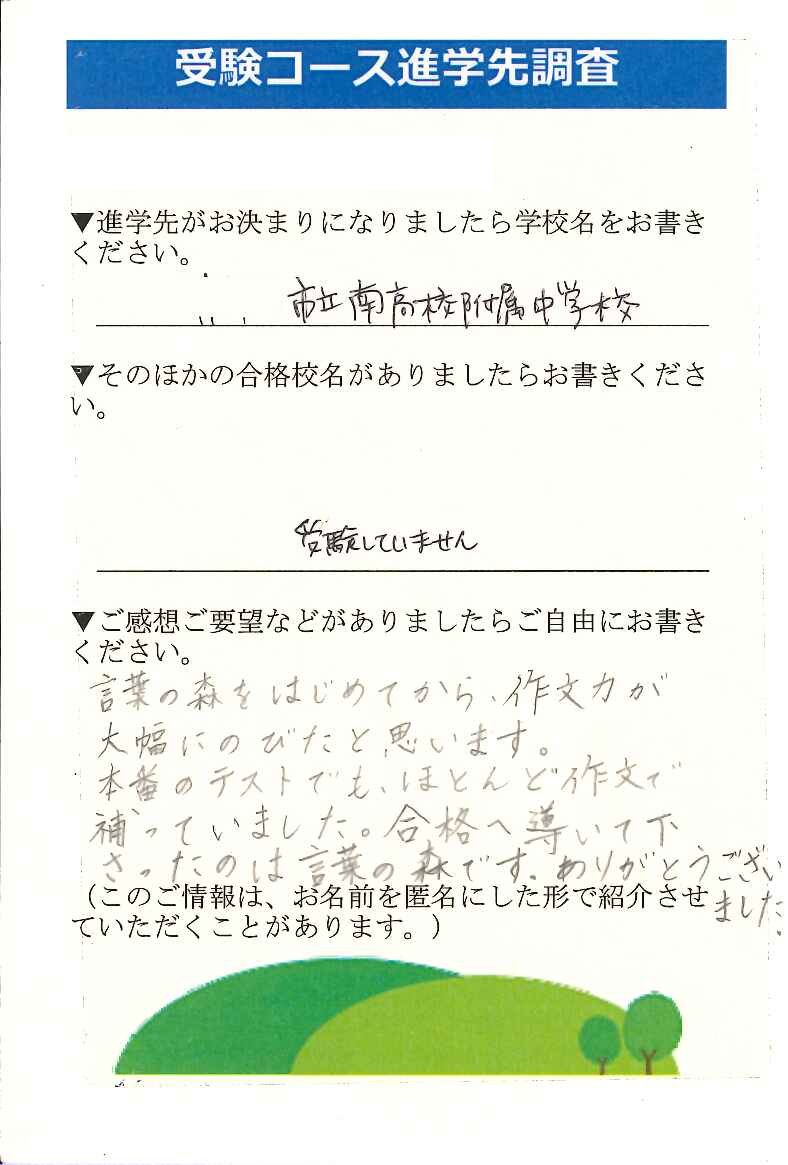 受験コース進学先調査
▼進学先がお決まりになりましたら学校名をお書き
ください。
市立南高校附属中学校
▼そのほかの合格校名がありましたらお書きくださ
い。
受験していません
▼ご感想ご要望などがありましたらご自由にお書き
ください。
言葉の森をはじめてから、作文力が
大幅にのびたと思います。
本番のテストでも、ほとんど作文で
補っていました。合格へ導いて下
さったのは言葉の森です。ありがとうござい
ました。
（このご情報は、お名前を匿名にした形で紹介させ
ていただくことがあります。）